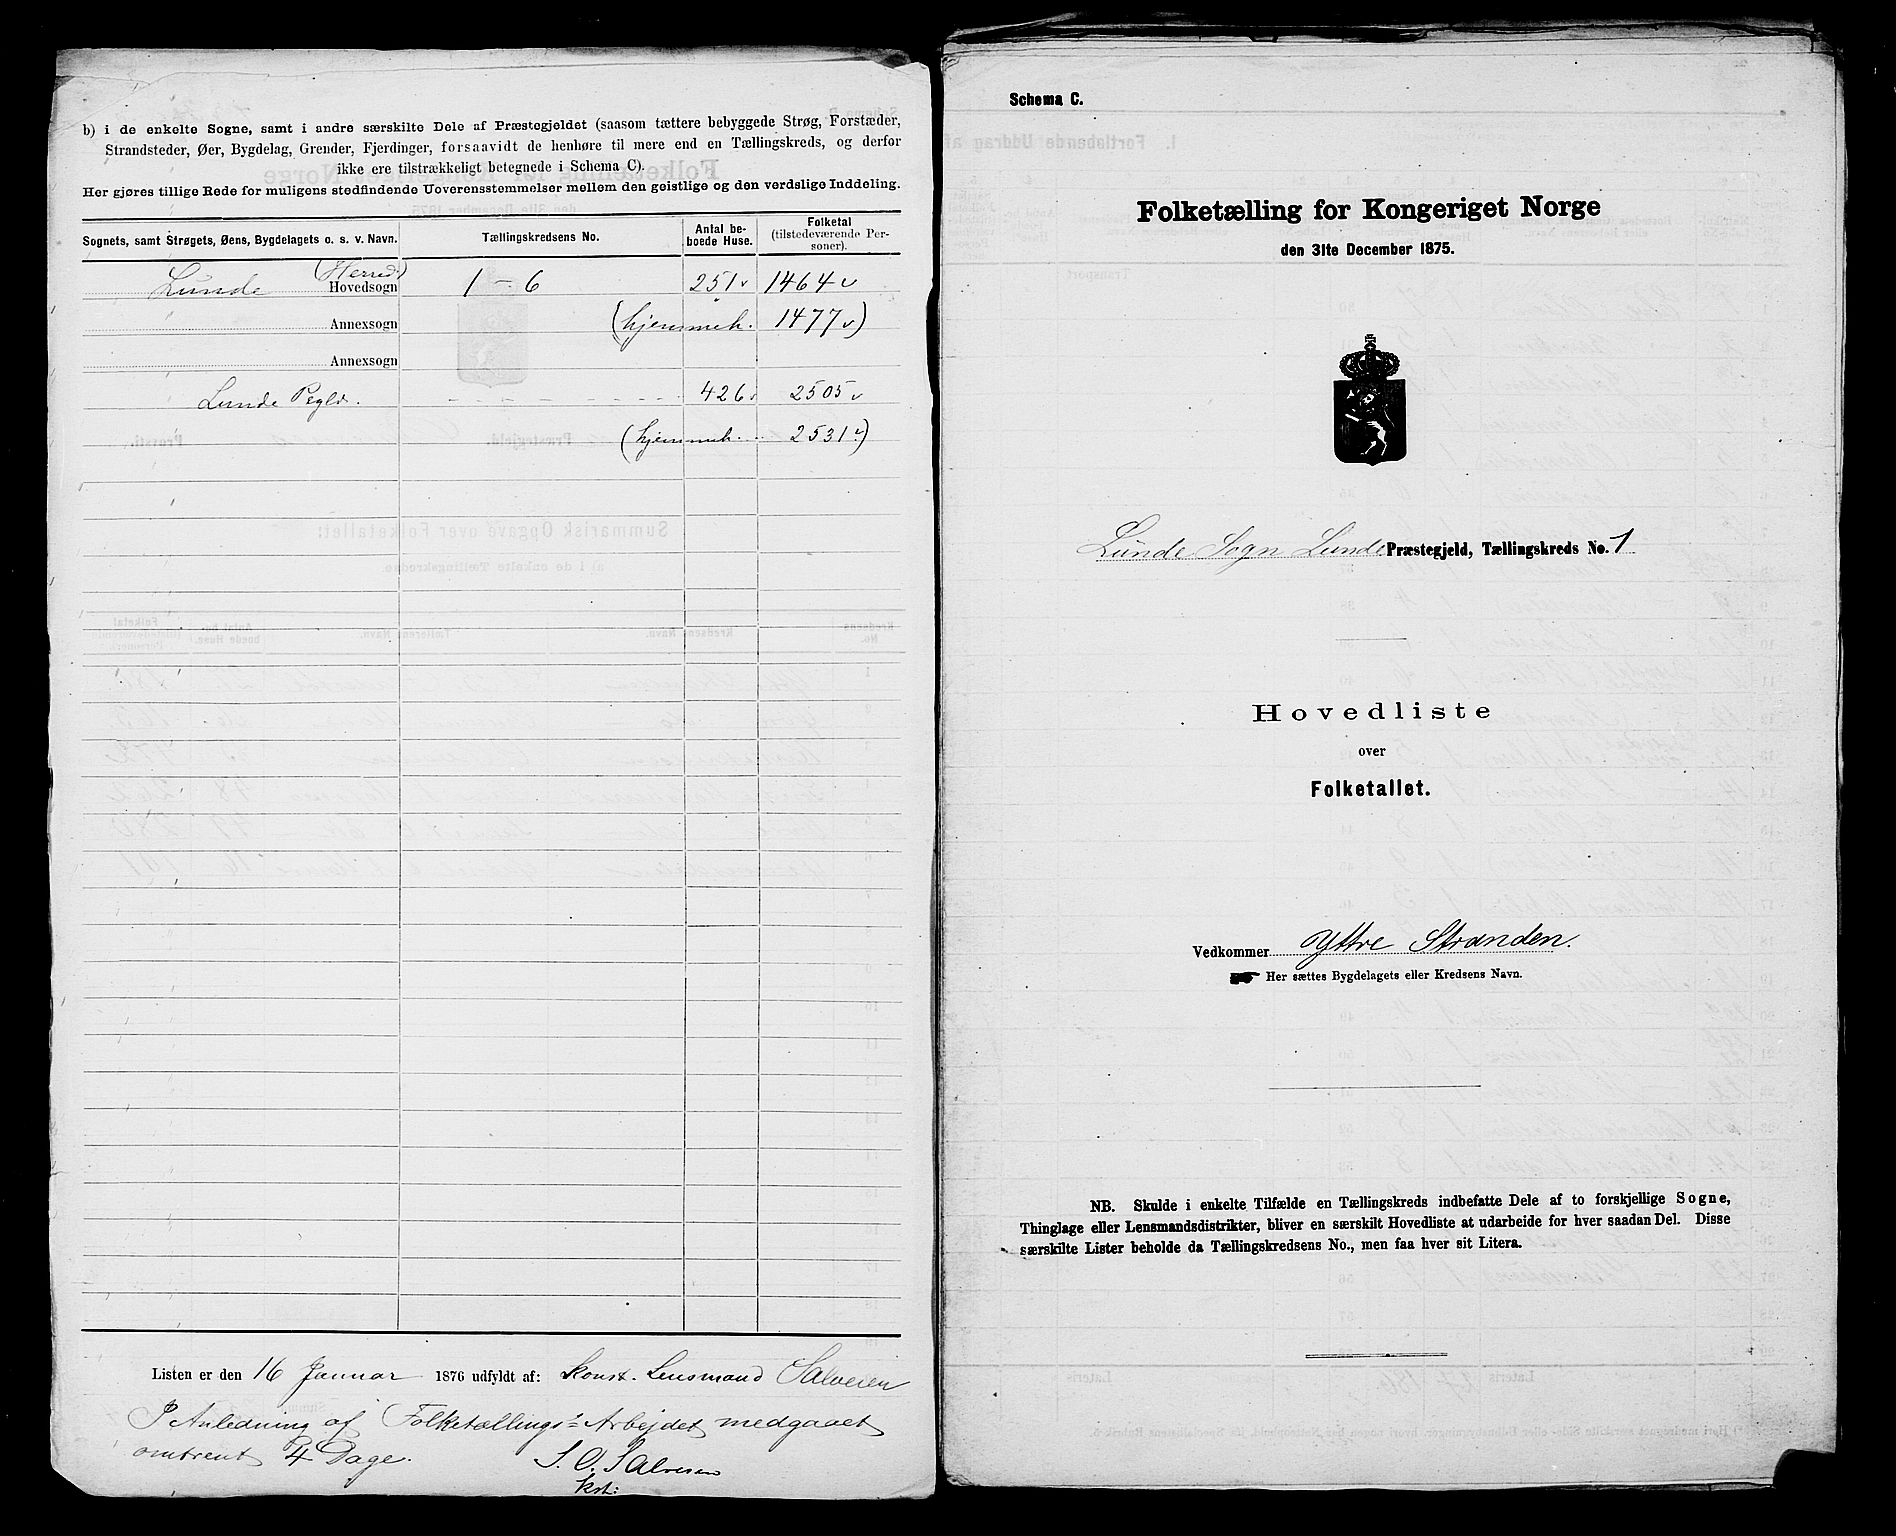 b) i de enkelte Sogne, samt i andre særskilte Dele af Præstegjeldet (saasom tættere bebyggede Strøg, Forstæder,
Strandsteder, Øer, Bygdelag, Grender, Fjerdinger, forsaavidt de henhøre til mere end en Tællingskreds, og derfor
ikke ere tilstrækkeligt betegnede i Schema C).
Her gjøres tillige Rede for muligens stedfindende Uoverensstemmelser mellem den geistlige og den verdslige Inddeling.
Sognets, samt Strøgets, Øens, Bygdelagets o. s. v. Navn. Tællingskredsens No. Antal be-boede Huse. Folketal (tilstedeværende Per-soner).
Lunde (Herred) Hovedsogn 1 - 6 251 v 1464 v
Annexsogn (hjemmeh. 1477 v)
Annexsogn
Lunde Pgld. 426 v 2505 v
(hjemmeh. 2531 v)
Listen er den 16 Januar 1876 udfyldt af: Konst. Lensmand Salvesen
I Anledning af Folketællings-Arbejdet medgaaet
omtrent 4 Dage. S. O. Salvesen
kst:
Schema C.
Folketælling for Kongeriget Norge
den 31te December 1875.
Lunde Sogn Lunde Præstegjeld, Tællingskreds No. 1
Hovedliste
over
Folketallet.
Vedkommer Yttre Stranden.
Her sættes Bygdelagets eller Kredsens Navn.
NB. Skulde i enkelte Tilfælde en Tællingskreds indbefatte Dele af to forskjellige Sogne,
Thinglage eller Lensmandsdistrikter, bliver en særskilt Hovedliste at udarbeide for hver saadan Del. Disse
særskilte Lister beholde da Tællingskredsens No., men faa hver sit Litera.